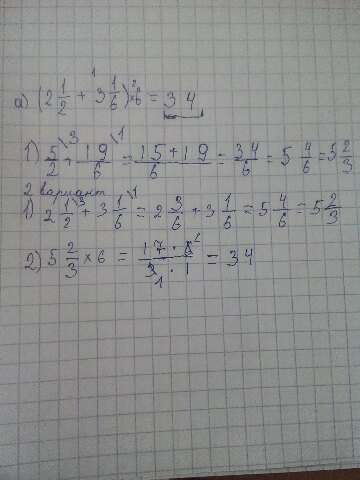 а) (2 1/2 + 3 1/6) × 6 = 34
1) 5/2 + 19/6 = 15 + 19/6 = 34/6 = 5 4/6 = 5 2/3
2 вариант
1) 2 1/2 + 3 1/6 = 2 3/6 + 3 1/6 = 5 4/6 = 5 2/3
2) 5 2/3 × 6 = 17 · 6/3 · 1 = 34